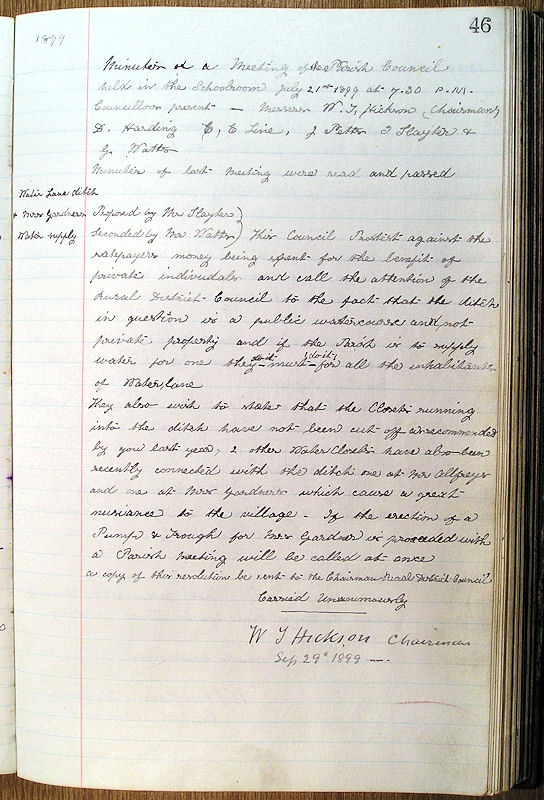 46
1899
Minutes of a Meeting of the Parish Council
held in the Schoolroom July 21st 1899 at 7.30 P.M.
Councillors present — Messrs W. T. Hickson (Chairman)
D. Harding C, C Line, J Petts T Slayter &
G. Watts
Minutes of last meeting were read and passed
Water Lane ditch
& Mrs Gardners
Water supply
Proposed by Mr Slayter)
Seconded by Mr Watts) This Council Protest against the
ratepayers money being spent for the benefit of
private individals and call the attention of the
Rural District Council to the fact that the ditch
in question is a public watercourse and not
private property and if the Parish is to supply
water for one they must do it for all the inhabitants
of Water Lane
They also wish to state that the Closets running
into the ditch have not been cut off as recommended
by you last year, 2 other Water Closets have also been
recently connected with the ditch one at Mr Allfreys
and one at Mrs Gardners which cause a great
nuisance to the village – If the erection of a
Pump & Trough for Mrs Gardner is proceeded with
a Parish Meeting will be called at once
a copy of this resolution be sent to the Chairman Rural District Council
Carried Unanimously
W T Hickson Chairman
Sep 29th 1899 —